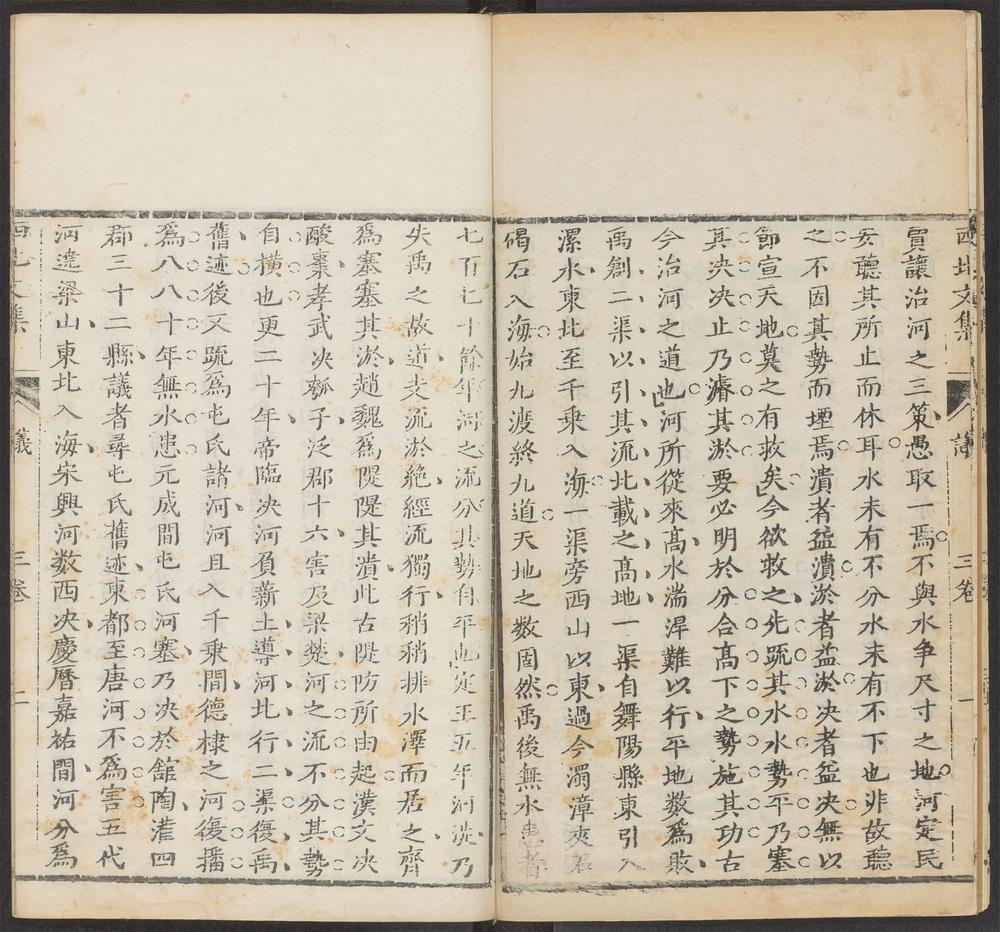 西北文集 議 三卷 一
賈讓治河之三策愚取一焉不與水争尺寸之地河定民
安聽其所止而休耳水未有不分水未有不下也非故聽
之不因其勢而堙焉潰者益潰淤者益淤决者益决無以
節宣天地莫之有救矣今欲救之先疏其水水勢平乃塞
其决决止乃濬其淤要必明於分合高下之勢施其功古
今治河之道也河所從來高水湍渾難以行平地数為敗
禹創二渠以引其流北載之高地一渠自舞陽縣東引入
漯水東北至千乗入海一渠旁西山以東過今濁漳夾
碣石入海始九渡終九道天地之数固然禹後無水患者
七百七十餘年河之流分其勢自平也定王五年河徙乃
失禹之故道支流淤絶經流獨行稍稍排水澤而居之齊
為塞塞其淤趙魏為隄隄其潰此古隄防所由起漢文决
酸棗孝武决瓠子泛郡十六害及梁楚河之流不分其勢
自横也更二十年帝臨决河負薪土導河北行二渠復禹
舊迹後又疏為屯氏諸河河且入千乗間德棣之河復播
為八八十年無水患元成間屯氏河塞乃决於館陶灌四
郡三十二縣議者尋屯氏舊迹東都至唐河不為害五代
河遶梁山東北入海宋興河数西决慶曆嘉祐間河分為
西北文集 議 三卷 二